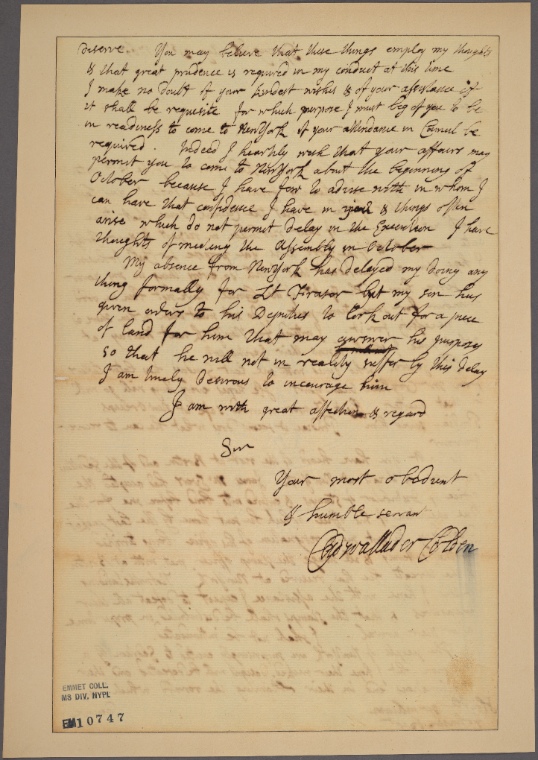 deserve. You may believe that these things employ my thoughts
& that great prudence is required in my conduct at this time
I make no doubt of your kindest wishes & of your assistance if
it shall be requisite for which purpose I must beg of you to be
in readiness to come to NewYork if your attendance in Council be
required. Indeed I heartily wish that your affairs may
permit you to come to NewYork about the beginning of
October because I have few to advise with in whom I
can have that confidence I have in you & things often
arise which do not permit delay in the Execution I have
thoughts of meeting the Assembly in October
My absence from NewYork has delayed my doing any
thing formally for Lt but my son has
given orders to his Deputies to look out for a piece
of land for him that may answer his purpose
so that he will not in reality suffer by this delay
I am truly desirous to incourage him
I am with great affection & regard
Sir
Your most obedient
& humble servan
Cadwallader Colden
EMMET COLL.
MS DIV, NYPL
EM10747